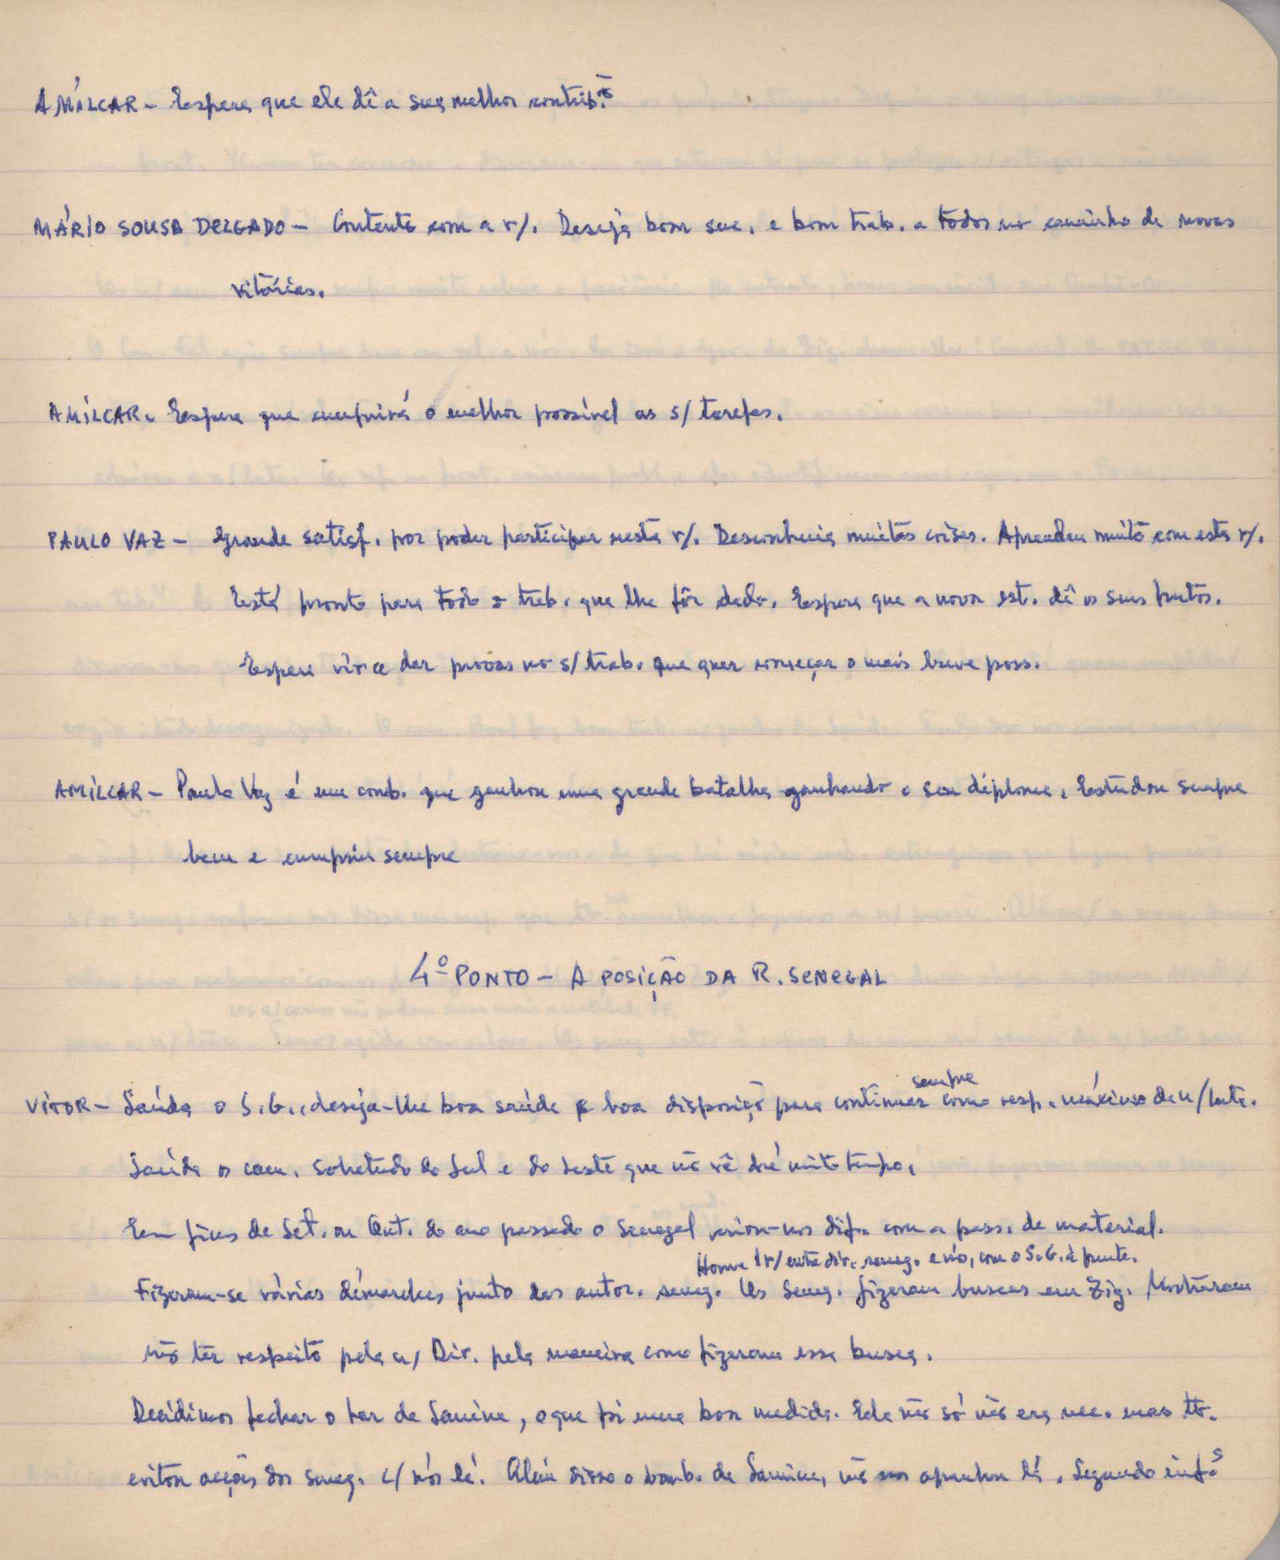 AMÍLCAR - Espera que ele dê a sua melhor contrib.ão
MÁRIO SOUSA DELGADO - Contente com a r/. Deseja bom suc. e bom trab. a todos no caminho de novas
vitórias.
AMÍLCAR. Espera que cumprirá o melhor possível as s/ tarefas.
PAULO VAZ - Grande satisf. por poder participar nesta r/. Desconhecia muitas coisas. Aprendeu muito com esta r/.
Está pronto para todo o trab. que lhe fôr dado. Espera que a nova est. dê os seus frutos.
Espera vir a dar provas no s/ trab. que quer começar o mais breve poss.
AMÍLCAR - Paulo Vaz é um comb. que ganhou uma grande batalha ganhando o seu diploma. Estudou sempre
bem e cumpriu sempre
4º PONTO - A POSIÇÃO DA R. SENEGAL
sempre
VITOR - Saúda o S.G., deseja-lhe boa saúde e boa disposição para continuar como resp. máximo da n/ luta.
Saúda os cam. sobretudo do Sul e do Leste que não vê há muito tempo.
Em fins de Set. ou Out. do ano passado o Senegal criou-nos dif. com a pass. de material.
Houve 1 r/ entre dir. seneg. e nós, com o S.G. à frente.
Fizeram-se várias démarches junto das autor. seneg. Os Seneg. fizeram buscas em Zig. Mostraram
não ter respeito pela n/ Dir. pela maneira como fizeram essa busca.
Decidimos fechar o lar de Samine, o que foi uma boa medida. Ele não só não era nec. mas tb.
evitou acções dos seneg. c/ nós lá. Além disso o bomb. de Samine, não nos apanhou lá. Segundo inf.s